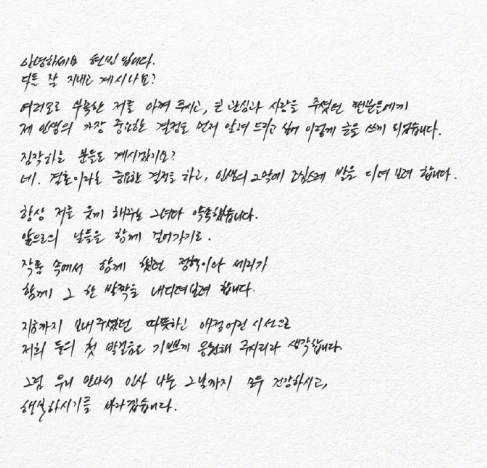 안녕하세요 현빈 입니다.
다들 잘 지내고 계시나요?
여러모로 부족한 저를 아껴 주시고, 큰 관심과 사랑을 주셨던 팬분들에게
제 인생의 가장 중요한 결정을 먼저 알려 드리고 싶어 이렇게 글을 쓰게 되었습니다.
짐작하는 분들도 계시겠지요?
네. 결혼이라는 중요한 결정을 하고, 인생의 2막에 조심스레 발을 디뎌 보려 합니다.
항상 저를 웃게 해주는 그녀와 약속했습니다.
앞으로의 날들을 함께 걸어가기로.
작품 속에서 함께 했던 정혁이와 세리가
함께 그 한 발짝을 내디뎌보려 합니다.
지금까지 보내주셨던 따뜻하고 애정어린 시선으로
저희 둘의 첫 발걸음도 기쁘게 응원해 주시리라 생각합니다.
그럼 우리 만나서 인사 나눌 그날까지 모두 건강하시고,
행복하시기를 바라겠습니다.